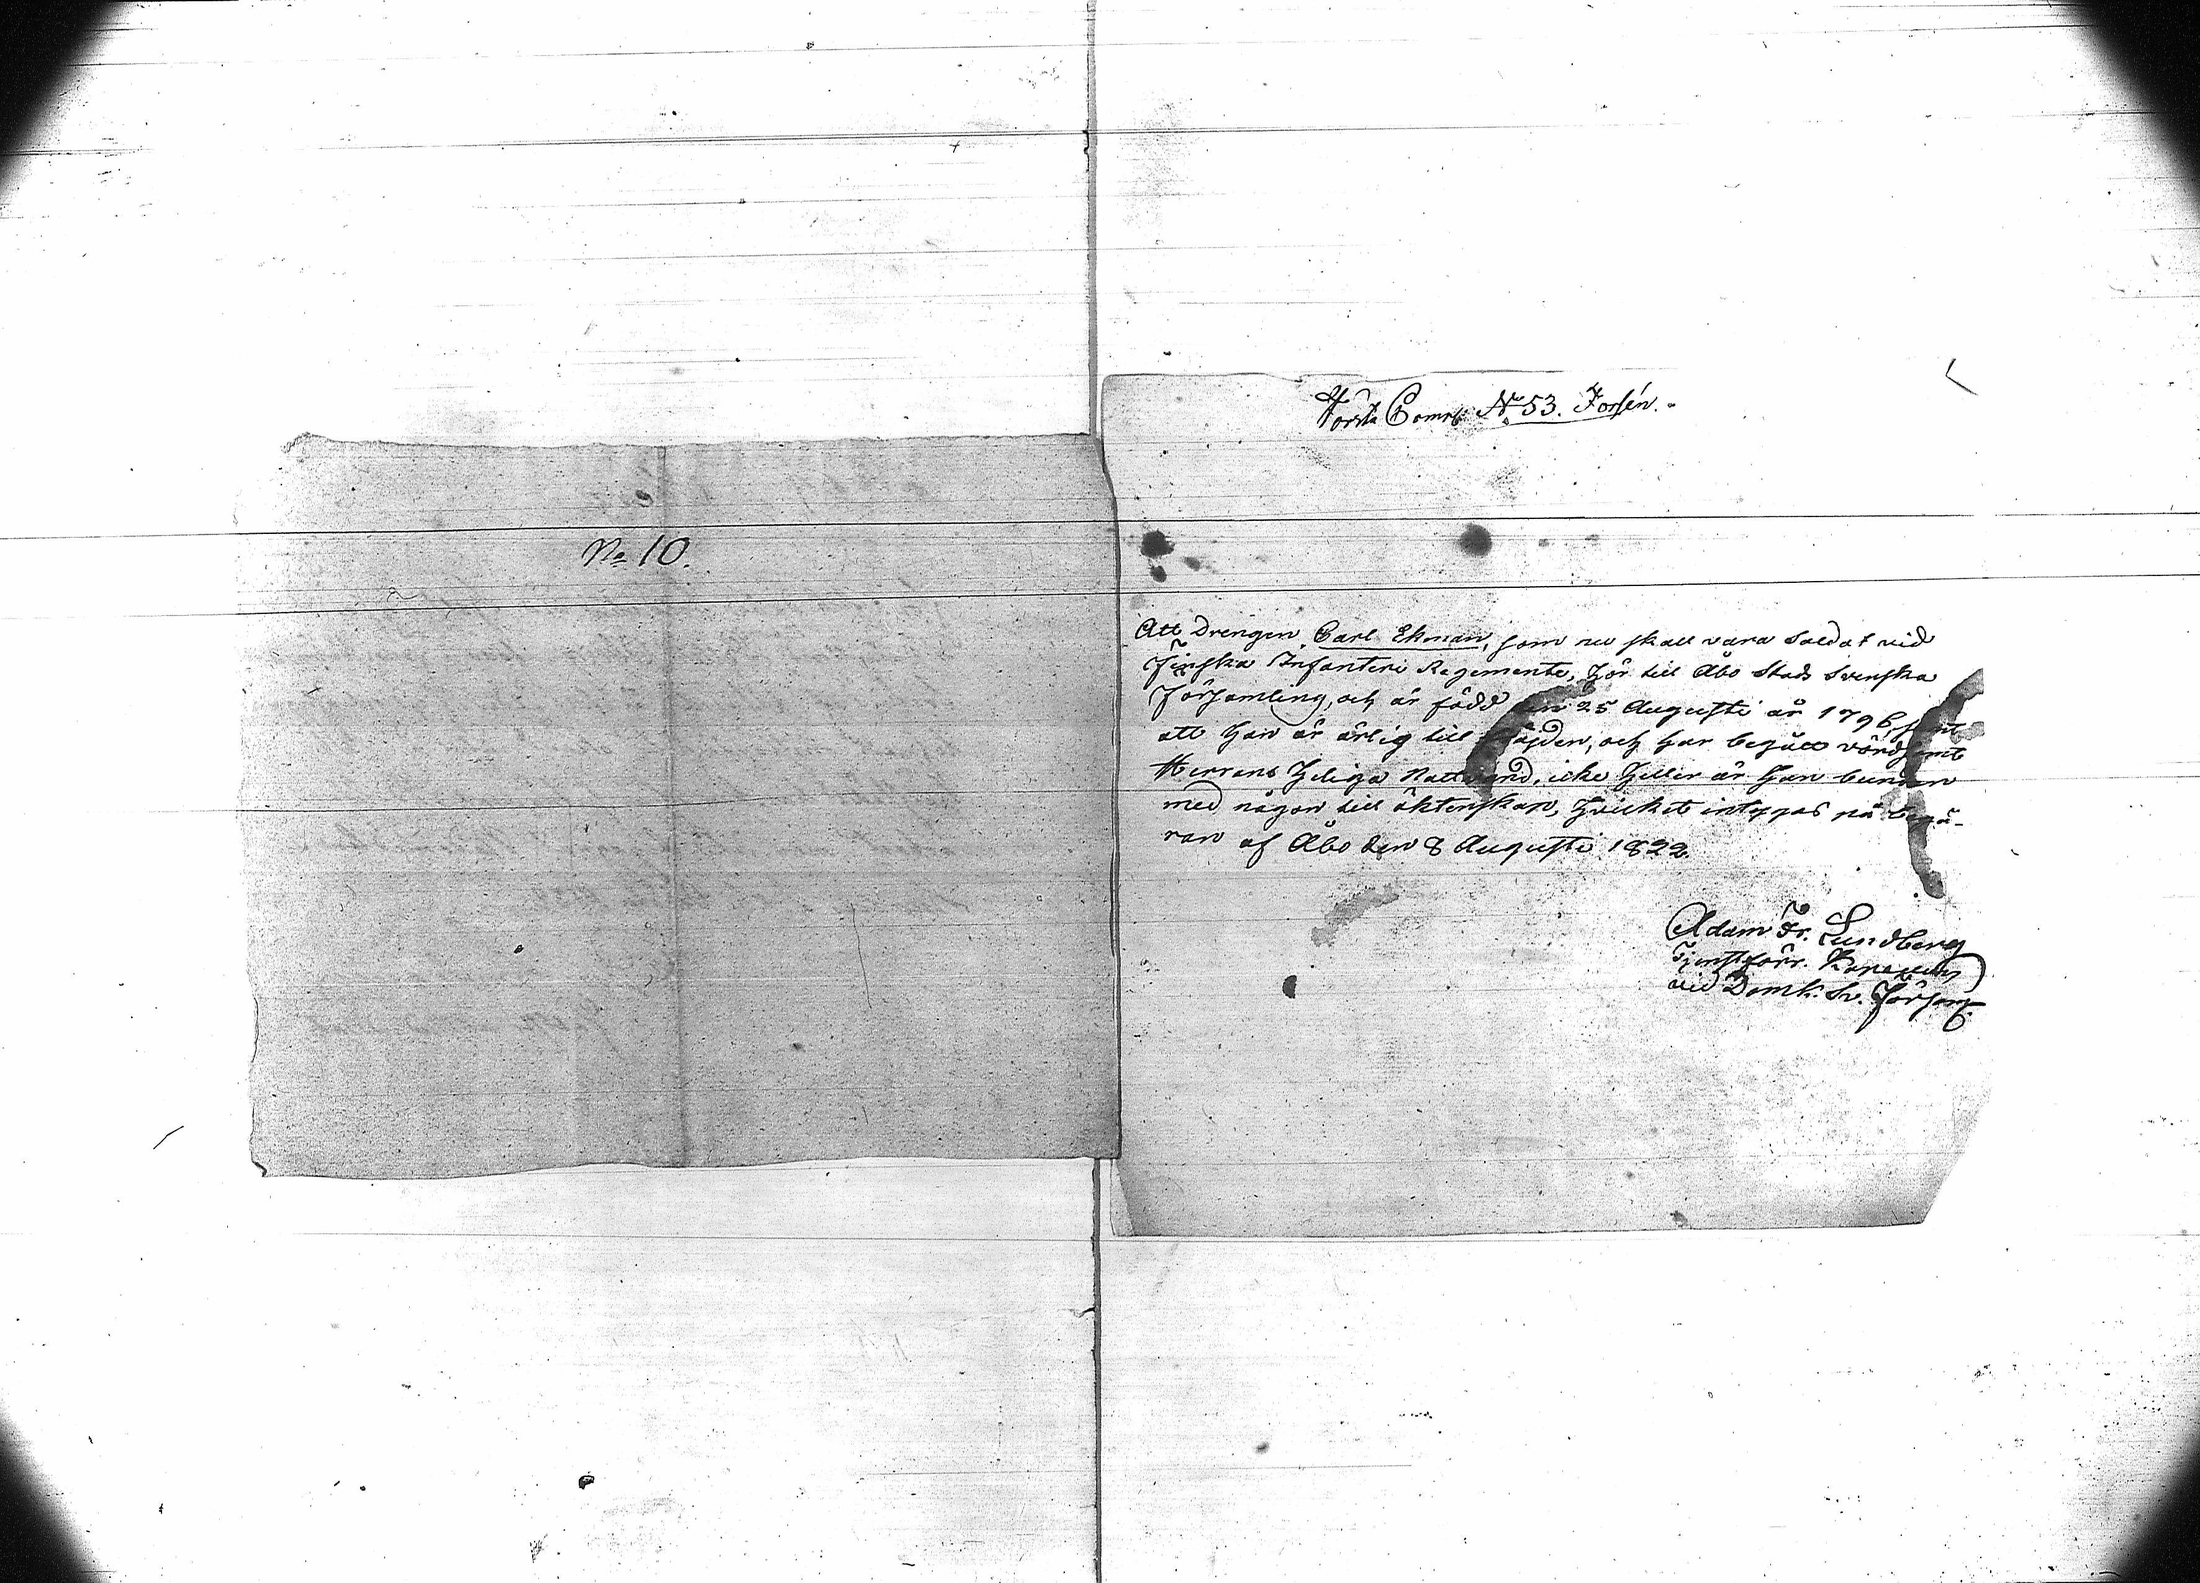 No 10.
Torsta Comp: No 53. Forsén.
Att Drengen Carl Ekman, som nu skall vara Soldat vid
Finska Infanteri Regemente, hör till Åbo Stads Svenska
Församling, och är född den 25 Augusti år 1796, samt
att han är ärlig till frejden, och har begått vördsamt
Herrans Heliga Nattvard, icke heller är han bunden
med någon till äktenskap, hvilket intygas på begä-
ran af Åbo den 8 Augusti 1822.
Adam Fr. Lundberg
Tjenstförr. Kapellan
vid Domk. Sv. Förs